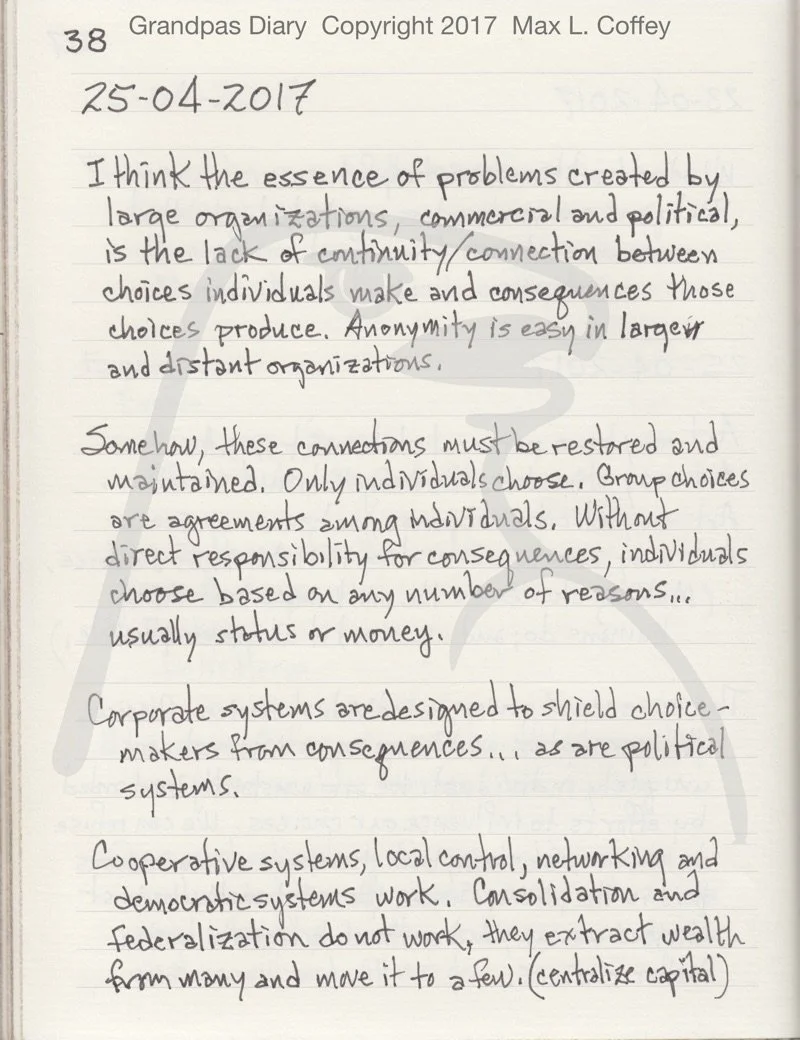 Grandpas Diary Copyright 2017 Max L. Coffey
38
25-04-2017
I think the essence of problems created by
large organizations, commercial and political,
is the lack of continuity/connection between
choices individuals make and consequences those
choices produce. Anonymity is easy in larger
and distant organizations.
Somehow, these connections must be restored and
maintained. Only individuals choose. Group choices
are agreements among individuals. Without
direct responsibility for consequences, individuals
choose based on any number of reasons...
usually status or money.
Corporate systems are designed to shield choice-
makers from consequences... as are political
systems.
Cooperative systems, local control, networking and
democratic systems work. Consolidation and
federalization do not work, they extract wealth
from many and move it to a few. (centralize capital)